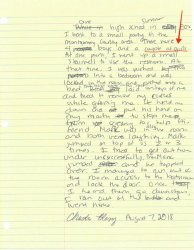 One summer
high school in
I went to a small party in the
Montgomery County area. There were
4 boys and a couple of girls
at the party. I went up a small
stairwell to use the restroom. At
that time, I was pushed
into a bedroom and was
locked in the room and pushed onto a
bed. laid on top of me
and tried to remove my clothes
while groping me. He held me
down and put his hand on
my mouth to stop me
from screaming for help. His
friend Mark was in the room
and both were laughing. Mark
jumped on top of us 2 or 3
times. I tried to get out from
under unsuccessfully. Mark
jumped and we toppled
over. I managed to run out of
the room across to the bathroom
and lock the door. Once
I heard them go downstairs,
I ran out of the house and
went home.
August 7, 2018